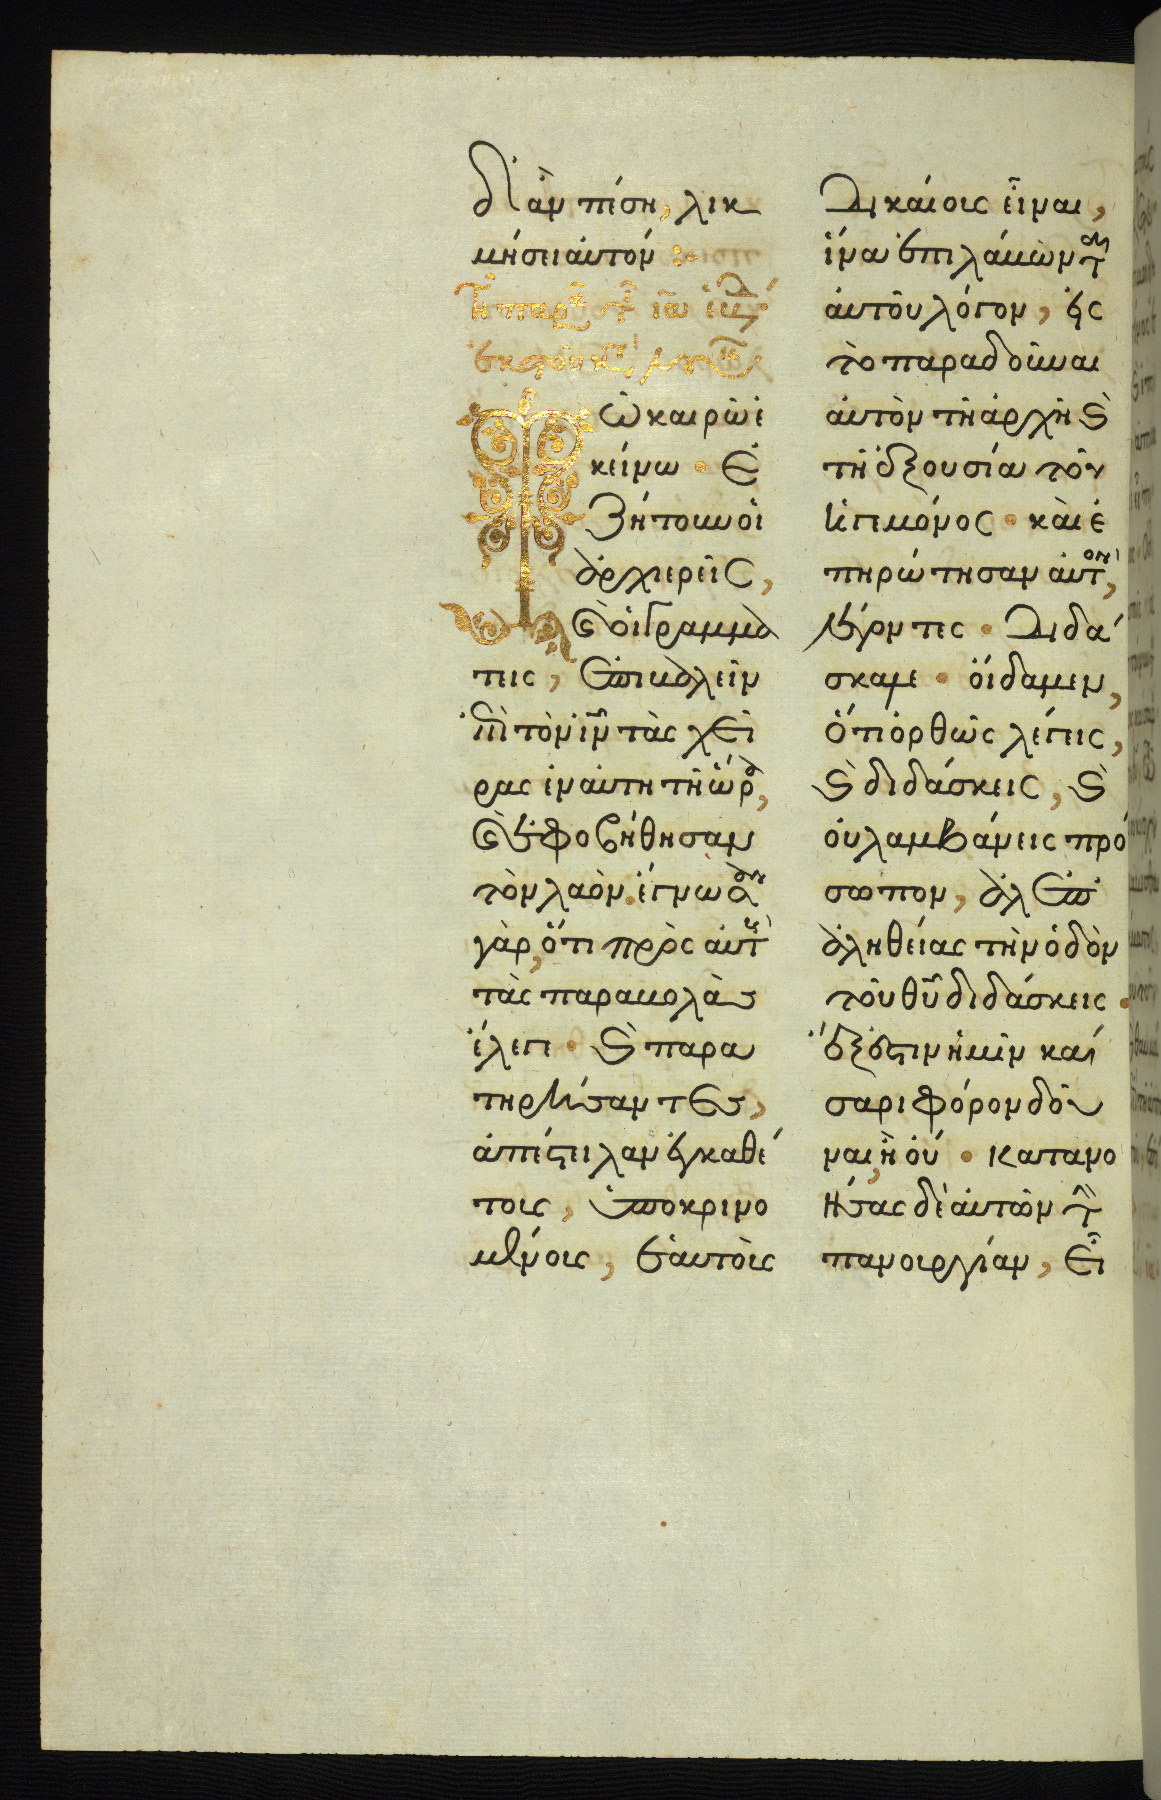 δ' ἀν πέση, λικ
μήσει αὐτόν :
Τῆ παρ
ἐκ τοῦ κτ
Τῶ καιρῶ ἐ
κείνω · Ἐ
ζήτουν οἱ
ἀρχιερεῖς,
καὶ οἱ γραμμα
τεῖς, ἐπιβαλεῖν
ἐπὶ τὸν ἰν τὰς χεῖ
ρας ἐν αὐτῆ τῆ ὥρα,
καὶ ἐφοβήθησαν
τὸν λαόν. ἔγνωσαν
γὰρ, ὅτι πρὸς αὐτοὺς
τὰς παραβολὰς
ἔλεγε · καὶ παρα
τηρήσαντες,
ἀπέστειλαν ἐγκαθέ
τους, ὑποκρινο
μένους, ἑαυτοὺς
Δικαίους εἶναι,
ἵνα ἐπιλάβωντ
αὐτοῦ λόγον, εἰς
τὸ παραδοῦναι
αὐτὸν τῆ ἀρχῆ καὶ
τῆ ἐξουσία τοῦ
ἡγεμόνος · καὶ ἐ
πηρώτησαν αὐτὸν,
λέγοντες · Διδά
σκαλε · οἴδαμεν,
ὅτι ὀρθῶς λέγεις,
καὶ διδάσκεις, καὶ
οὐ λαμβάνεις πρό
σωπον, ἀλλ' ἐπ'
ἀληθείας τὴν ὁδὸν
τοῦ θῦ διδάσκεις ·
ἔξεστιν ἡμῖν καί
σαρι φόρον δοῦ
ναι, ἢ οὔ · Κατανο
ήσας δὲ αὐτῶν τὴν
πανουργίαν, εἶ